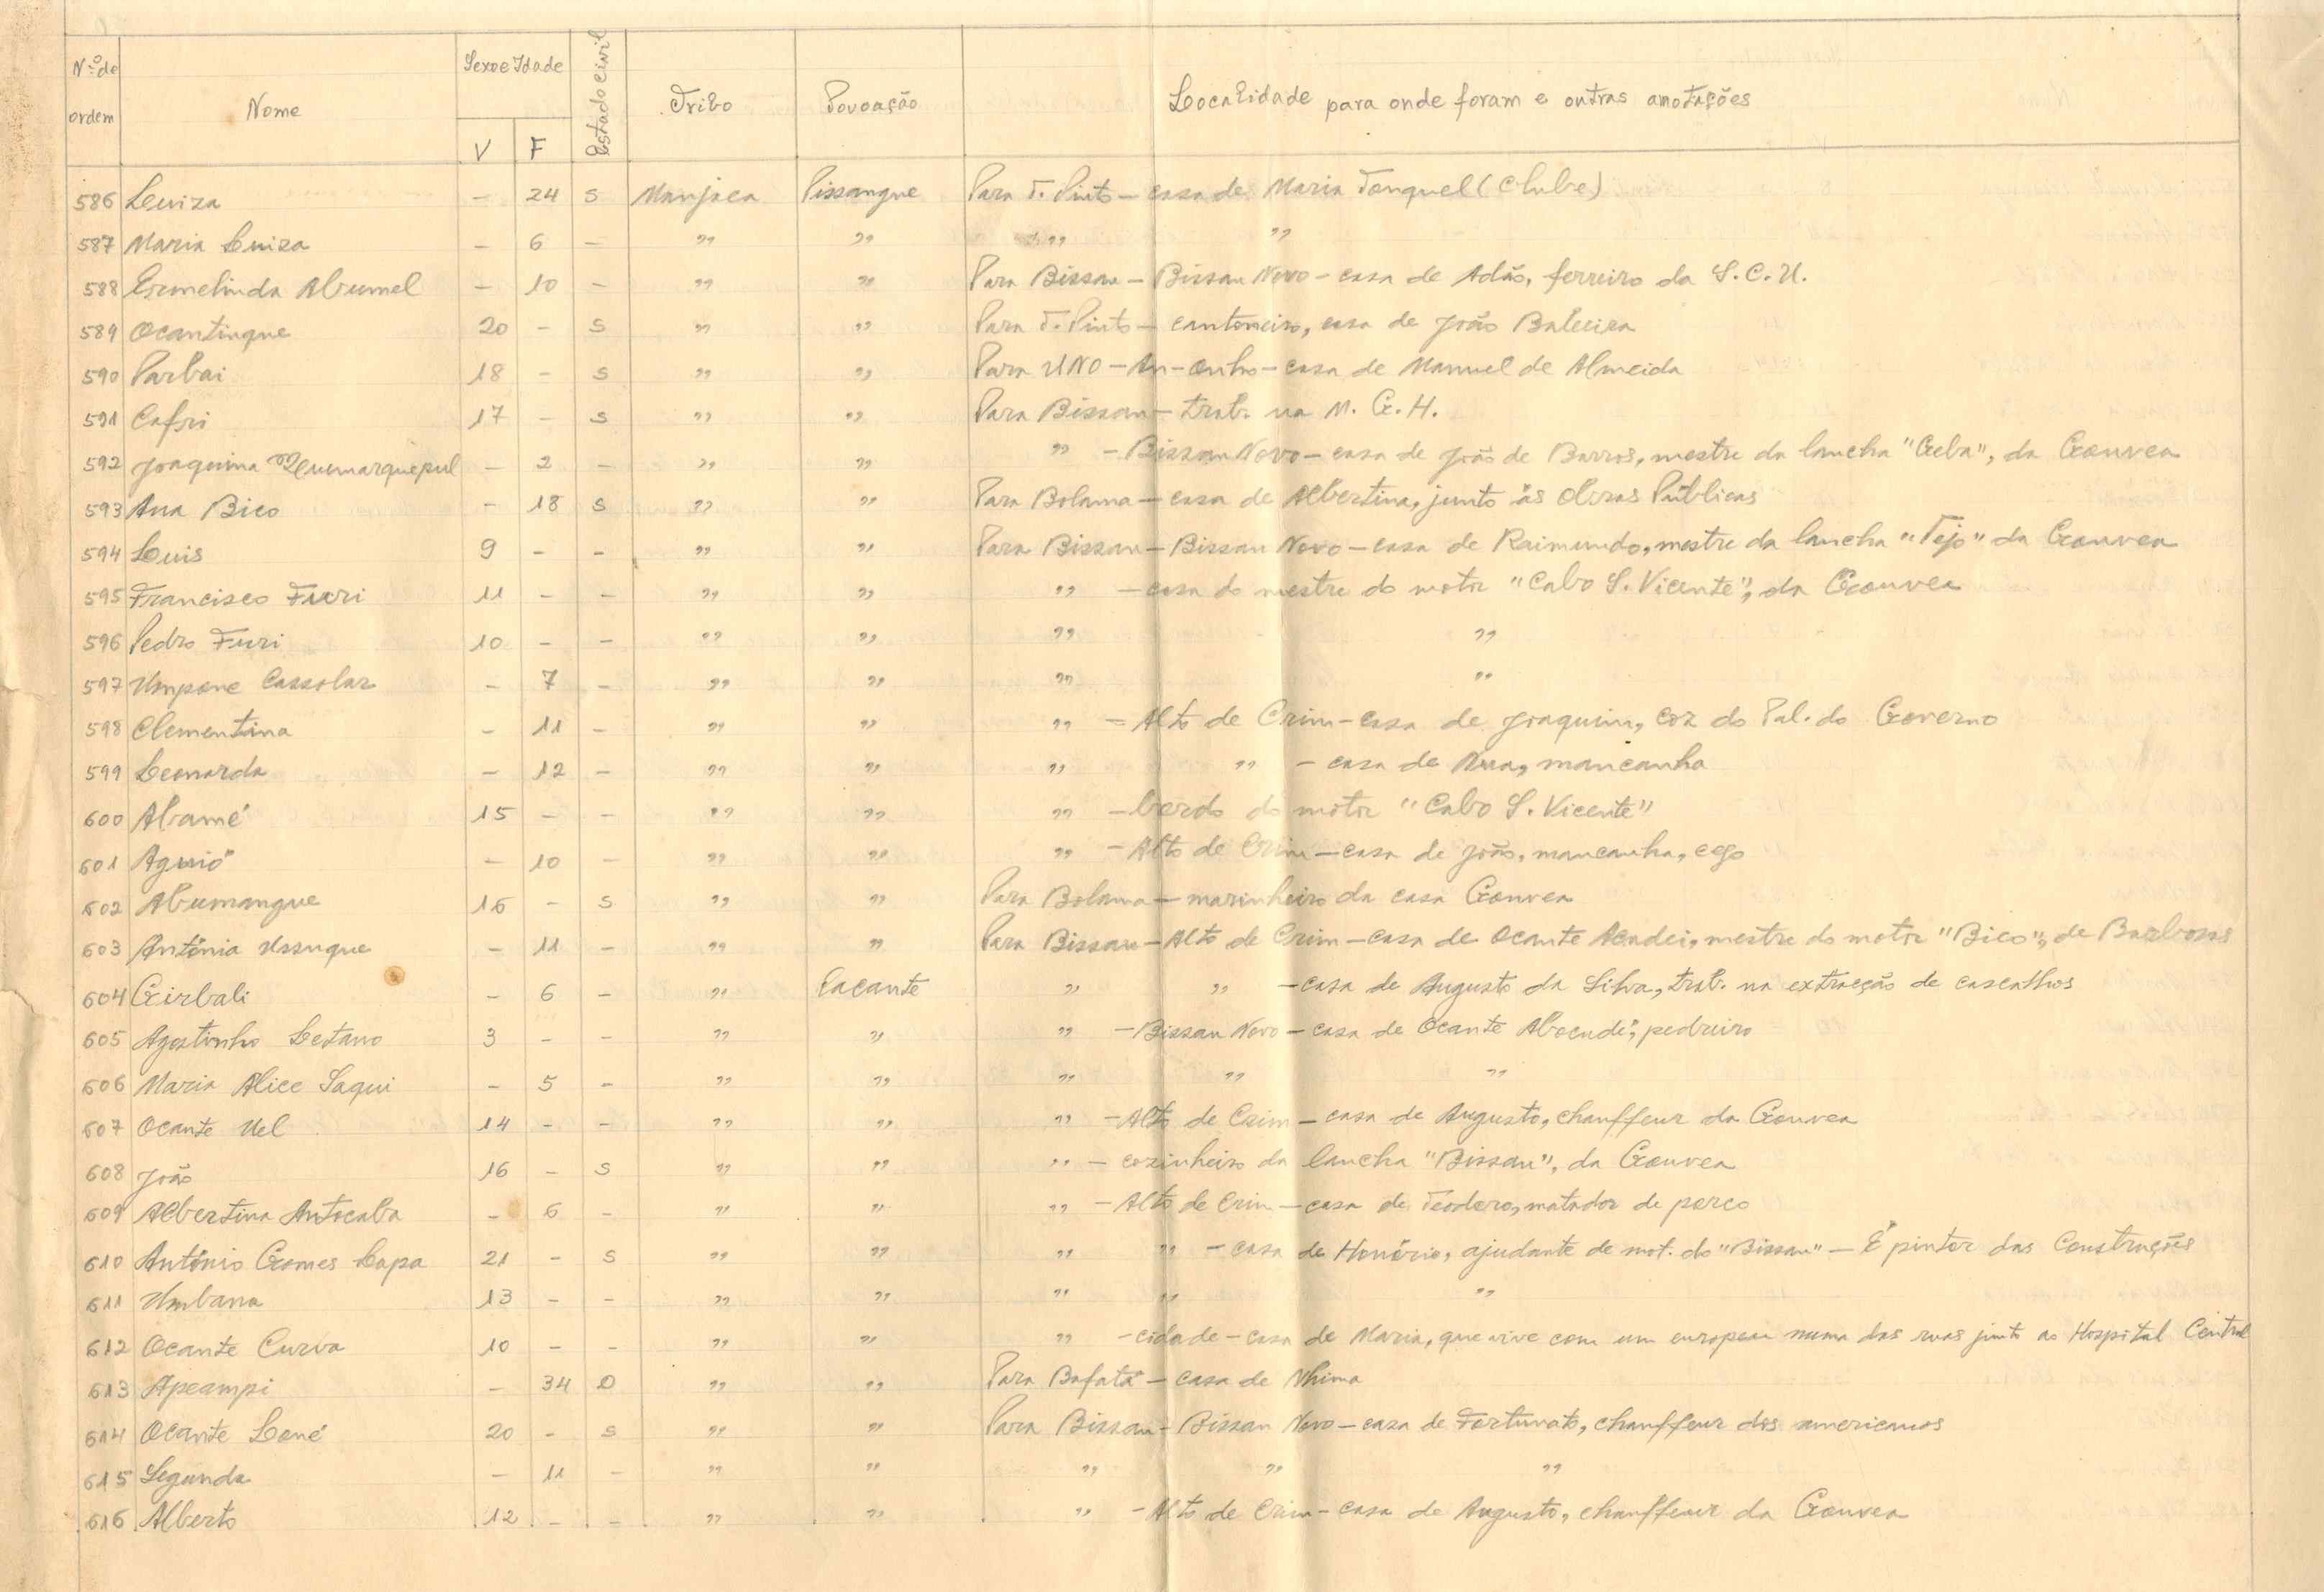 Nº de ordem | Nome | Sexo e Idade V F | Estado civil | Tribo | Povoação | Localidade para onde foram e outras anotações
586 Luiza - 24 s Manjaca Pissangue Para T. Pinto - casa de Maria Tonquel (Clube)
587 Maria Luiza - 6 - " " " "
588 Ermelinda Abumel - 10 - " " Para Bissau - Bissau Novo - casa de Adão, ferreiro da S.C.U.
589 Ocantingue 20 - s " " Para T. Pinto - cantoneiro, casa de João Baleeira
590 Parbai 18 - s " " Para UNO - An-onho - casa de Manuel de Almeida
591 Cafri 17 - s " " Para Bissau - trab. na M. G. H.
592 Joaquina - 2 - " " " - Bissau Novo - casa de João de Barros, mestre da lancha "Geba", da Gouvea
593 Ana Bico - 18 s " " Para Bolama - casa de Albertina, junto às Obras Públicas
594 Luis 9 - - " " Para Bissau - Bissau Novo - casa de Raimundo, mestre da lancha "Tejo" da Gouvea
595 Francisco Furi 11 - - " " " - casa do mestre do motor "Cabo S. Vicente", da Gouvea
596 Pedro Furi 10 - - " " " "
597 Umpane Cassolar - 7 - " " " "
598 Clementina - 11 - " " " - Alto de Crim - casa de Joaquim, coz do Pal. do Governo
599 Leonarda - 12 - " " " " - casa de Ana, mancanha
600 Abamé 15 - - " " " - bordo do motor "Cabo S. Vicente"
601 Aguió - 10 - " " " - Alto de Crim - casa de João, mancanha, cego
602 Abumangue 16 - s " " Para Bolama - marinheiro da casa Gouvea
603 Antónia Ussuque - 11 - " " Para Bissau - Alto de Crim - casa de Ocante Acadei, mestre do motor "Bico", de Barbosas
604 Girbali - 6 - " Cacante " " - casa de Augusto da Silva, trab. na extracção de cascalhos
605 Agostinho Letano 3 - - " " " - Bissau Novo - casa de Ocante Abocndé, pedreiro
606 Maria Alice Saqui - 5 - " " " " "
607 Ocante Uel 14 - - " " " - Alto de Crim - casa de Augusto, chauffeur da Gouvea
608 João 16 - s " " " - cozinheiro da lancha "Bissau", da Gouvea
609 Albertina Antocaba - 6 - " " " - Alto de Crim - casa de Teodoro, matador de porco
610 António Gomes Lapa 21 - s " " " " - casa de Honório, ajudante de mot. do "Bissau" - É pintor das Construções
611 Umbana 13 - - " " " " "
612 Ocante Curva 10 - - " " " - cidade - casa de Maria, que vive com um europeu numa das ruas junto ao Hospital Central
613 Apcampi - 34 D " " Para Bafatá - casa de Nhima
614 Ocante Loné 20 - s " " Para Bissau - Bissau Novo - casa de Fortunato, chauffeur dos americanos
615 Segunda - 11 - " " " " "
616 Alberto 12 - - " " " - Alto de Crim - casa de Augusto, chauffeur da Gouvea